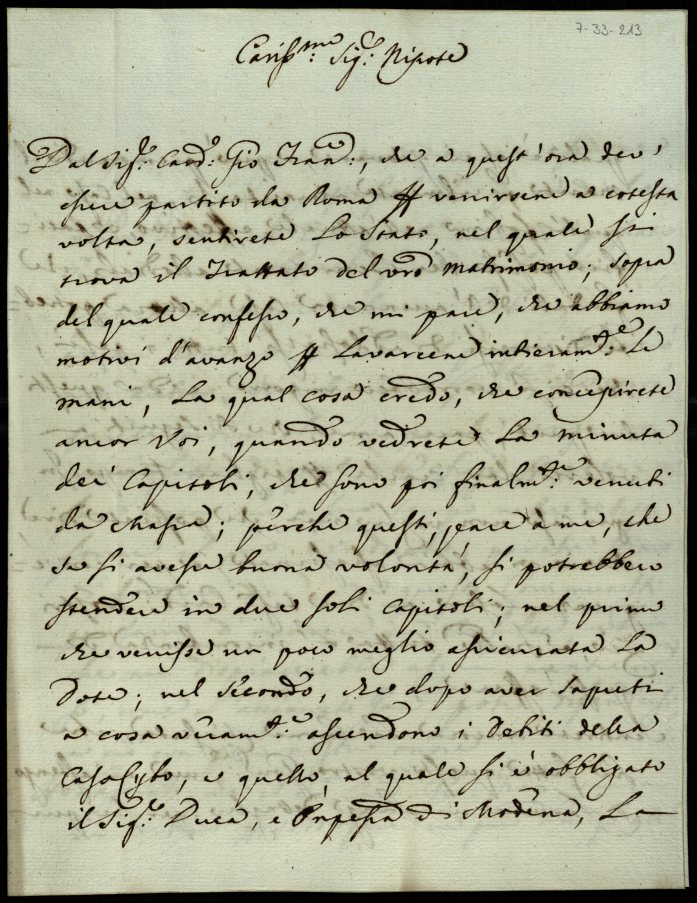 7-33-213
Cariss.mo Sig.r Nipote
Dal Sig.r Card. Gio Fran:, che a quest'ora dev'
essere partito da Roma per venirsene a cotesta
volta, sentirete Lo Stato, nel quale si
trova il Trattato del vro matrimonio; sopra
del quale confesso, che mi pare, che abbiamo
motivi d'avanzo per Lavarcene intieram.te Le
mani, La qual cosa credo, che concepirete
ancor Voi, quando vedrete La minuta
dei Capitoli, che sono poi finalm.te venuti
da Massa; perche questi, pare a me, che
se si avesse buona volontà, si potrebbero
stendere in due soli Capitoli; nel primo
che venisse un poco meglio assicurata La
Dote; nel secondo, che dopo aver saputi
a cosa veram.te ascendono i Debiti della
Casa Cybo, e quello, al quale si è obbligato
il Sig.r Duca, e Pnpessa di Modena, La